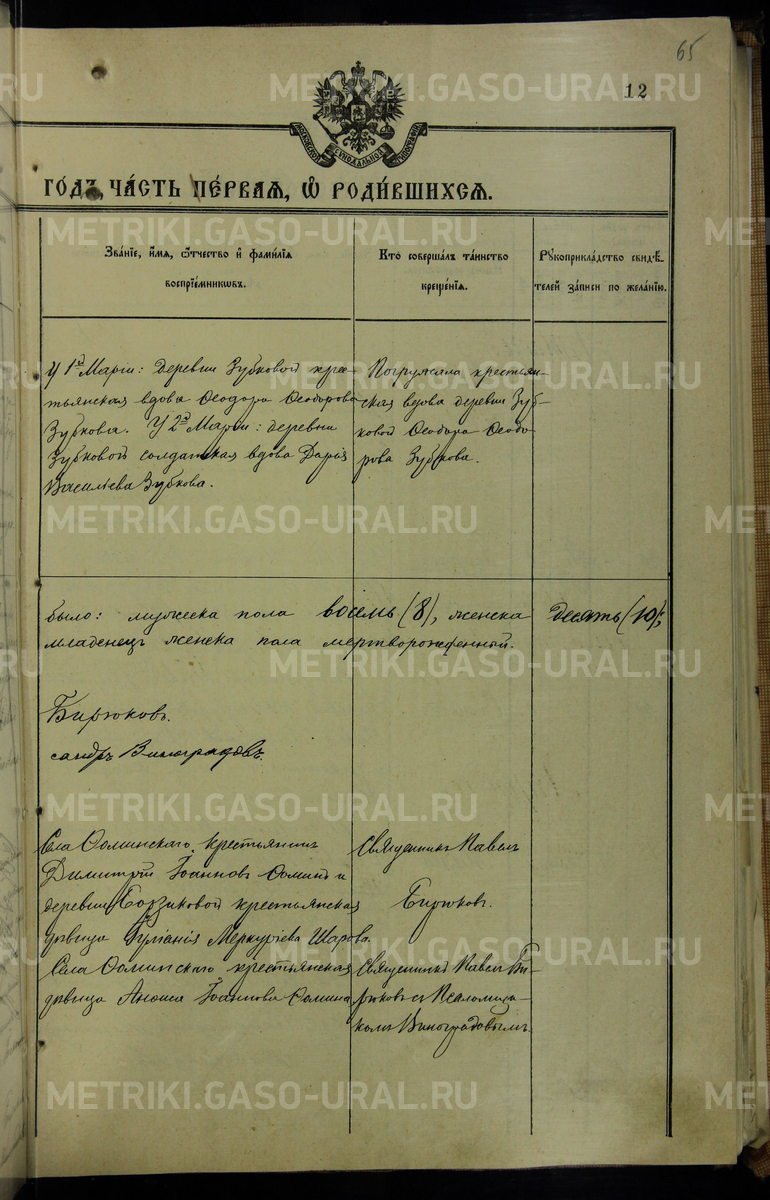 65
12
МОСКОВСКОЙ СѴНОДАЛЬНОЙ ТИПОГРАФІИ
ГОДЪ, ЧАСТЬ ПЕРВАЯ, Ѡ РОДИВШИХСЯ.
Званіе, имя, ѿчество и фамилія
воспріемниковъ.
Кто совершалъ таинство
крещенія.
Рукоприкладство свидѣ-
телей записи по желанію.
У 1й Маріи: деревни Зубковой крес-
тьянская вдова Ѳеодора Ѳеодорова
Зубкова. У 2й Маріи: деревни
Зубковой солдатская вдова Дарія
Васильева Зубкова.
Погружала крестьян-
ская вдова деревни Зуб-
ковой Ѳеодора Ѳеодо-
рова Зубкова.
было: мужеска пола восемь (8), женска десять (10);
младенецъ женска пола мертворожденный.
Бирюковъ.
сандръ Виноградовъ.
Села Ѳоминскаго крестьянинъ
Димитрій Іоанновъ Ѳоминъ и
деревни Боззиковой крестьянская
дѣвица Меркуріева Шарова.
Священникъ Павелъ
Бирюковъ.
Села Ѳоминскаго крестьянская
дѣвица Анѳиса Іоаннова Ѳомина
Священникъ Павелъ Би-
рюковъ съ Псаломщи-
комъ Виноградовымъ.
METRIKI.GASO-URAL.RU